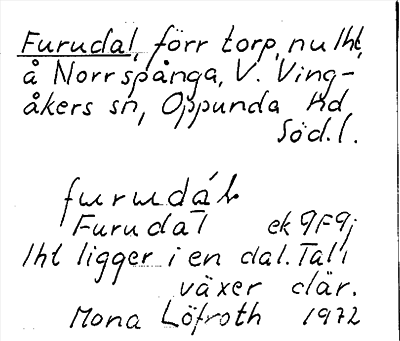 Furudal, förr torp, nu lht,
å Norrspånga, V. Ving-
åkers sn, Oppunda hd
Söd.l.
furudáL
Furudal ek 9F9j
lht ligger i en dal. Tall
växer där.
Mona Löfroth 1972